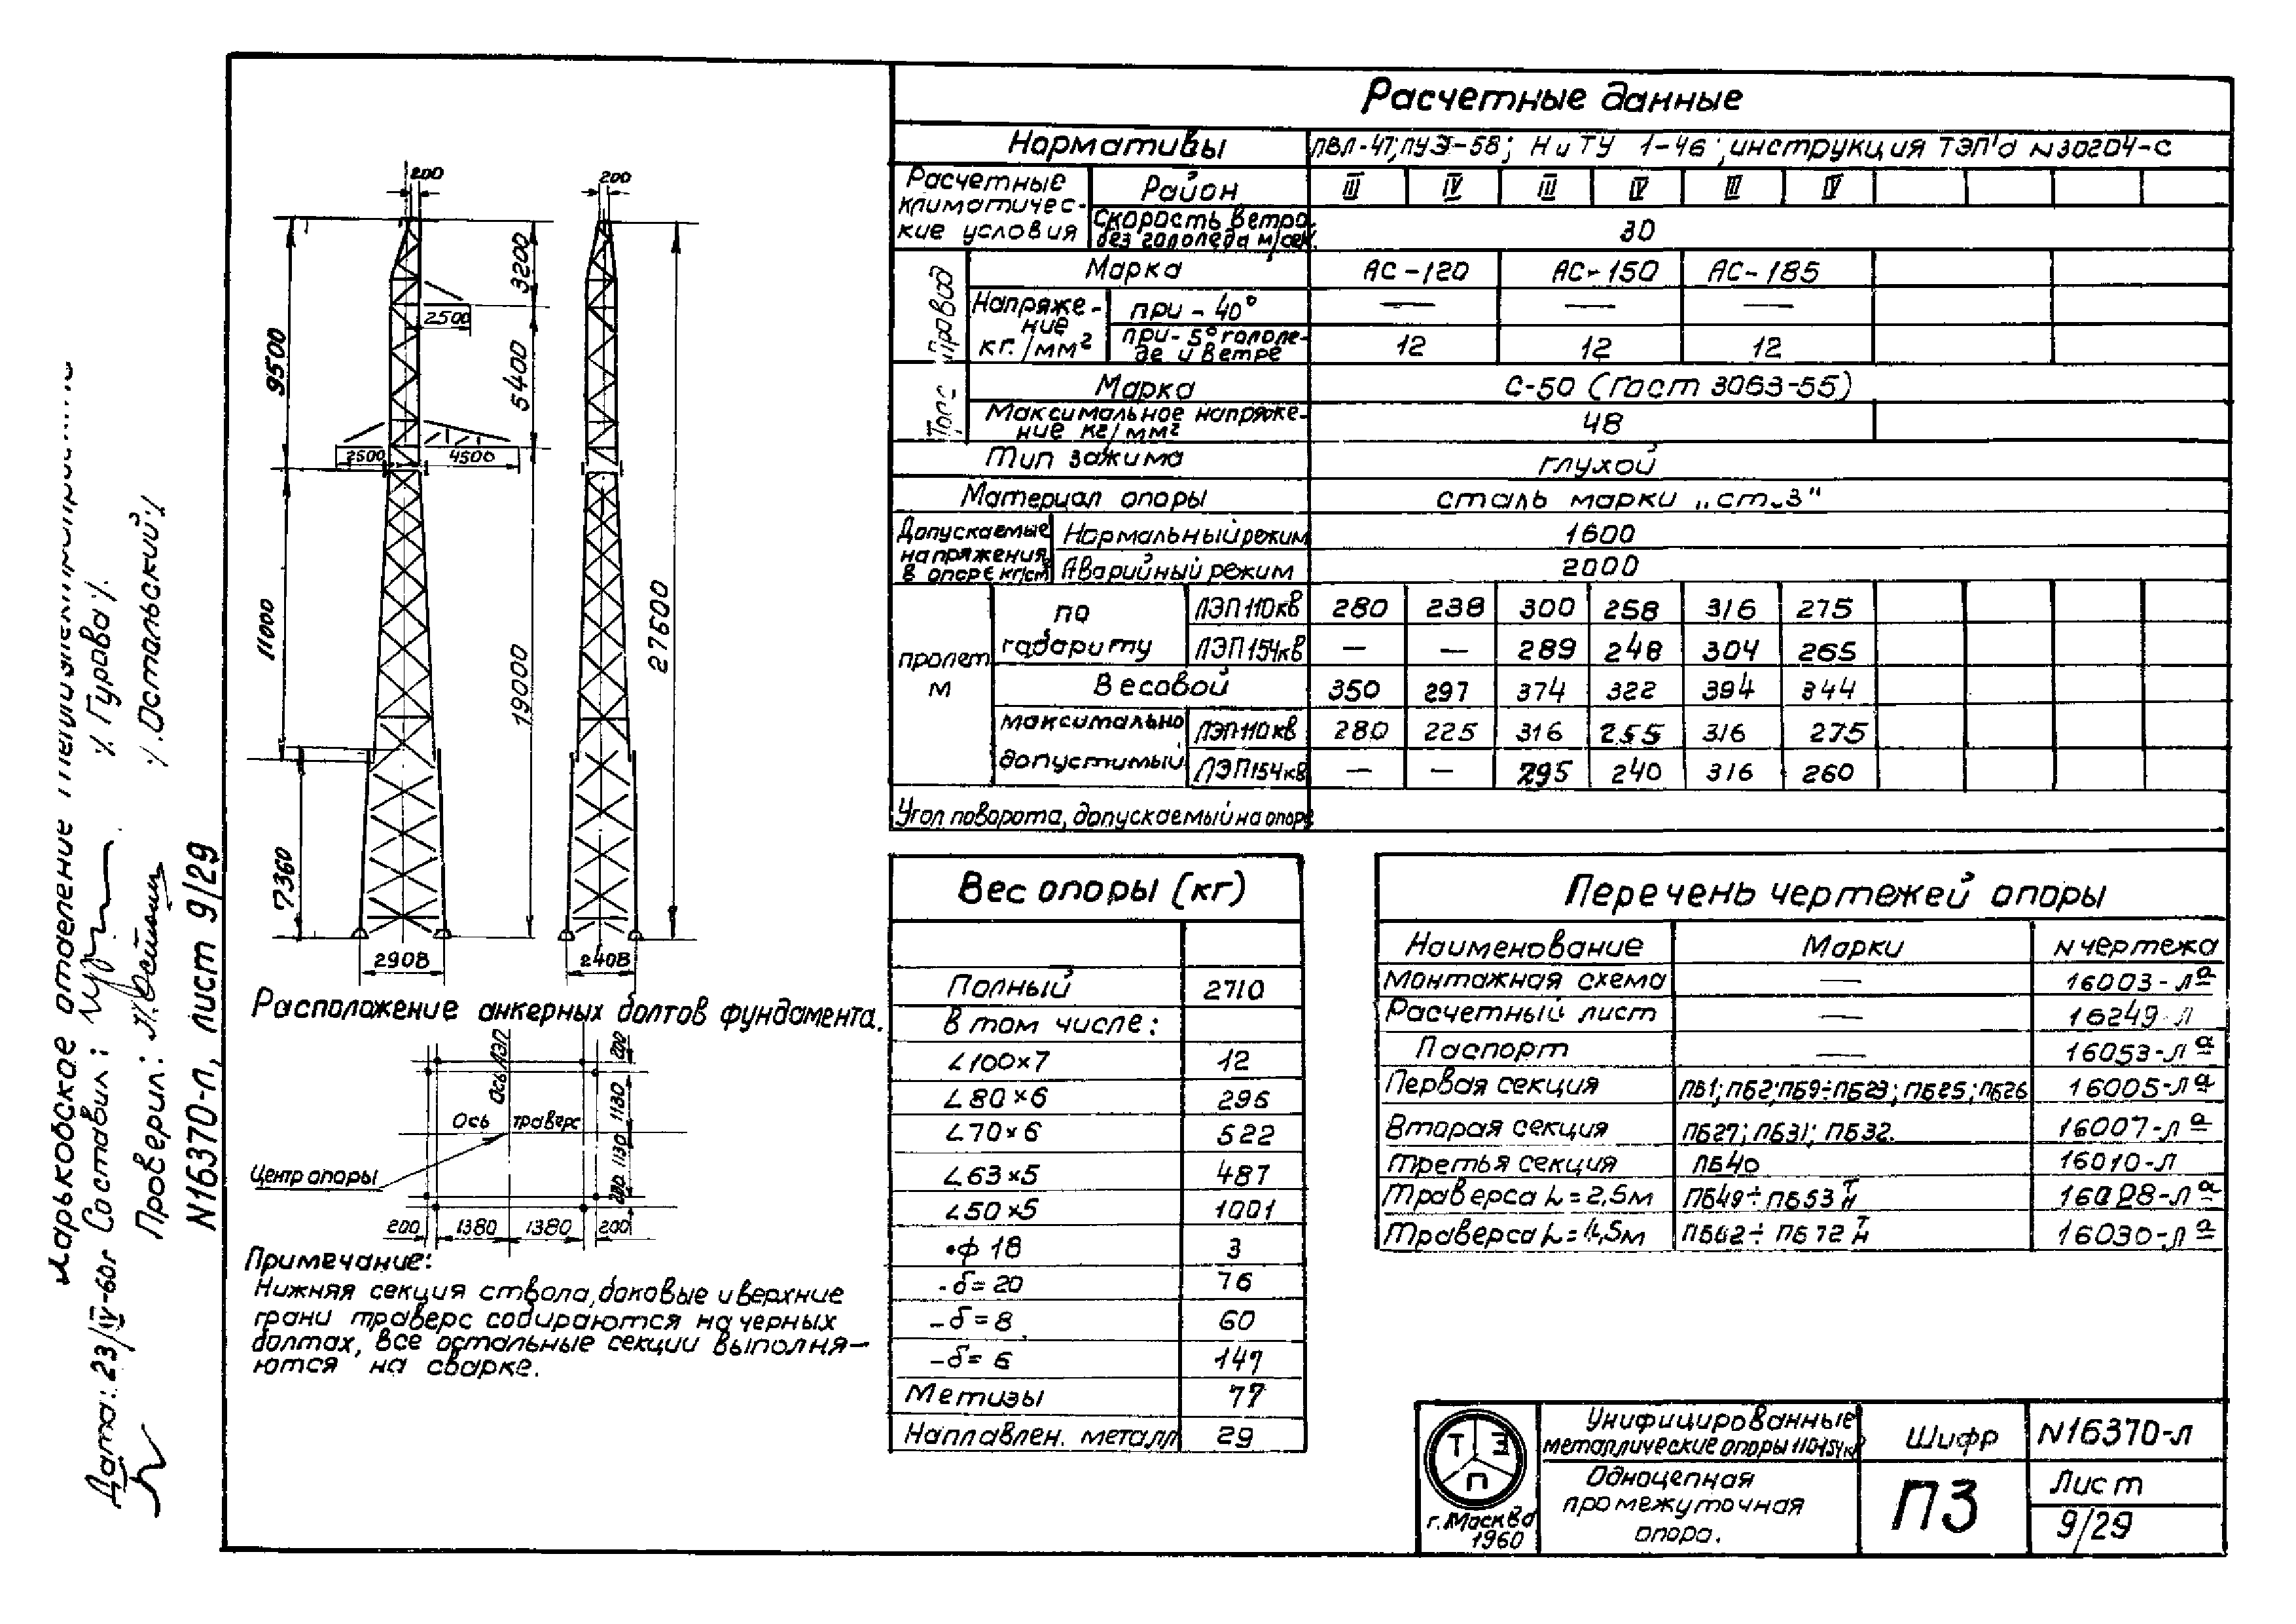 Расчетные данные
Нормативы ПВЛ-47; ПУЭ-58; НиТУ 1-46; инструкция ТЭП'а N30204-С
Расчетные климатичес-кие условия
Район III IV III IV III IV
Скорость ветра без гололеда м/сек. 30
Провод
Марка АС-120 АС-150 АС-185
Напряже-ние кг./мм²
при - 40° — — —
при - 5° гололе-де и ветре 12 12 12
Трос
Марка С-50 (Гост 3063-55)
Максимальное напряже-ние кг/мм² 48
Тип зажима глухой
Материал опоры сталь марки „ст.3"
Допускаемые напряжения в опоре кг/см²
Нормальный режим 1600
Аварийный режим 2000
пролет м
по габариту
ЛЭП 110кв 280 238 300 258 316 275
ЛЭП 154кв — — 289 248 304 265
Весовой 350 297 374 322 394 344
максимально допустимый
ЛЭП 110кв 280 225 316 255 316 275
ЛЭП 154кв — — 295 240 316 260
Угол поворота, допускаемый на опоре
200
200
9500
3200
2500
5400
2500
4500
11000
19000
27600
7360
2908
2408
Расположение анкерных болтов фундамента.
Ось ЛЭП
Ось траверс
Центр опоры
200
1180
1130
200
200 1380 1380 200
Примечание:
Нижняя секция ствола, боковые и верхние
грани траверс собираются на черных
болтах, все остальные секции выполня-
ются на сварке.
Вес опоры (кг)
Полный 2710
В том числе:
∠100×7 12
∠80×6 296
∠70×6 522
∠63×5 487
∠50×5 1001
•ф 18 3
-δ=20 76
-δ=8 60
-δ=6 147
Метизы 77
Наплавлен. металл 29
Перечень чертежей опоры
Наименование Марки N чертежа
Монтажная схема — 16003-лª
Расчетный лист — 16249-л
Паспорт — 16053-лª
Первая секция ПБ1; ПБ2; ПБ9÷ПБ23; ПБ25; ПБ26 16005-лª
Вторая секция ПБ27; ПБ31; ПБ32. 16007-лª
Третья секция ПБ40 16010-л
Траверса L=2,5м ПБ49÷ПБ53 Т/Н 16028-лª
Траверса L=4,5м ПБ62÷ПБ72 Т/Н 16030-лª
ТЭП
г. Москва
1960
Унифицированные
металлические опоры 110-154кв
Одноцепная
промежуточная
опора.
Шифр
П3
N16370-л
Лист
9/29
Харьковское отделение
Дата: 23/IV-60г Составил: /. Гурова /.
Проверил: /. Остальский /.
N16370-л, лист 9/29